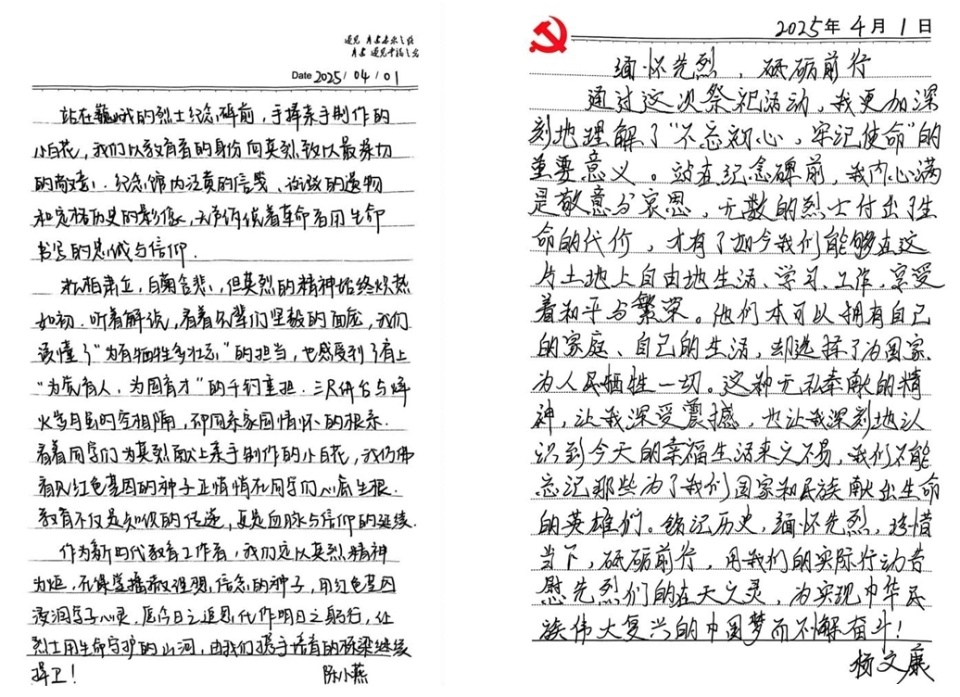 Date 2025/04/01
站在巍峨的烈士纪念碑前,手捧亲手制作的
小白花,我们以教育者的身份向英烈致以最崇切
的敬意。纪念馆内泛黄的信笺、斑驳的遗物
和定格历史的影像,无声诉说着革命者用生命
书写的忠诚与信仰.
松柏肃立,白菊含悲,但英烈的精神始终炽热
如初.听着解说,看着先辈们坚毅的面庞,我们
读懂了“为有牺牲多壮志”的担当,也感受到了肩上
“为党育人,为国育才”的千钧重担.三尺讲台与烽
火岁月虽时空相隔,却同系家国情怀的根系.
看着同学们为英烈献上亲手制作的小白花,我仿佛
看见红色基因的种子正悄悄在同学们心底生根.
教育不仅是知识的传递,更是血脉与信仰的延续.
作为新时代教育工作者,我们定以英烈精神
为炬,在课堂播撒理想、信念的种子,用红色基因
浸润学子心灵,愿今日之追思化作明日之躬行,让
烈士用生命守护的山河,由我们携手培育的栋梁继续
捍卫!
陈小燕
2025年4月1日
缅怀先烈,砥砺前行
通过这次祭祀活动,我更加深
刻地理解了“不忘初心,牢记使命”的
重要意义。站在纪念碑前,我内心满
是敬意与哀思,无数的烈士付出了生
命的代价,才有了如今我们能够在这
片土地上自由地生活、学习、工作,享受
着和平与繁荣。他们本可以拥有自己
的家庭、自己的生活,却选择了为国家、
为人民牺牲一切。这种无私奉献的精
神,让我深受震撼,也让我深刻地认
识到今天的幸福生活来之不易,我们不能
忘记那些为了我们国家和民族献出生命
的英雄们。铭记历史,缅怀先烈,珍惜
当下,砥砺前行,用我们的实际行动告
慰先烈们的在天之灵,为实现中华民
族伟大复兴的中国梦而不懈奋斗!
杨文康